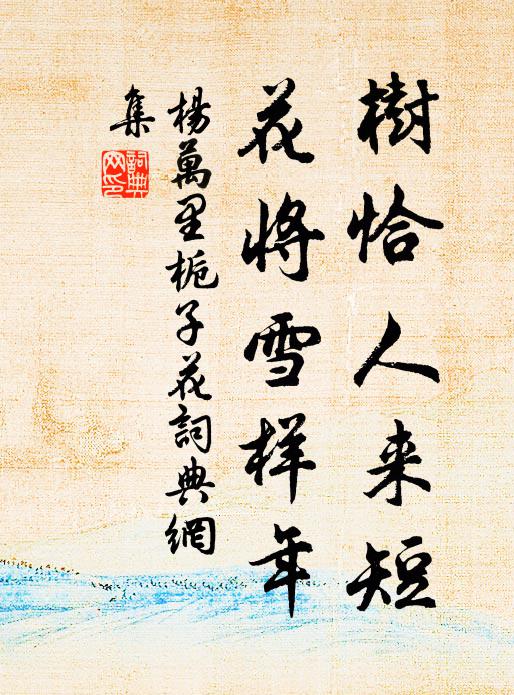 樹恰人来短
花將雪样年
楊萬里栀子花詞典網
集
詞典
网印